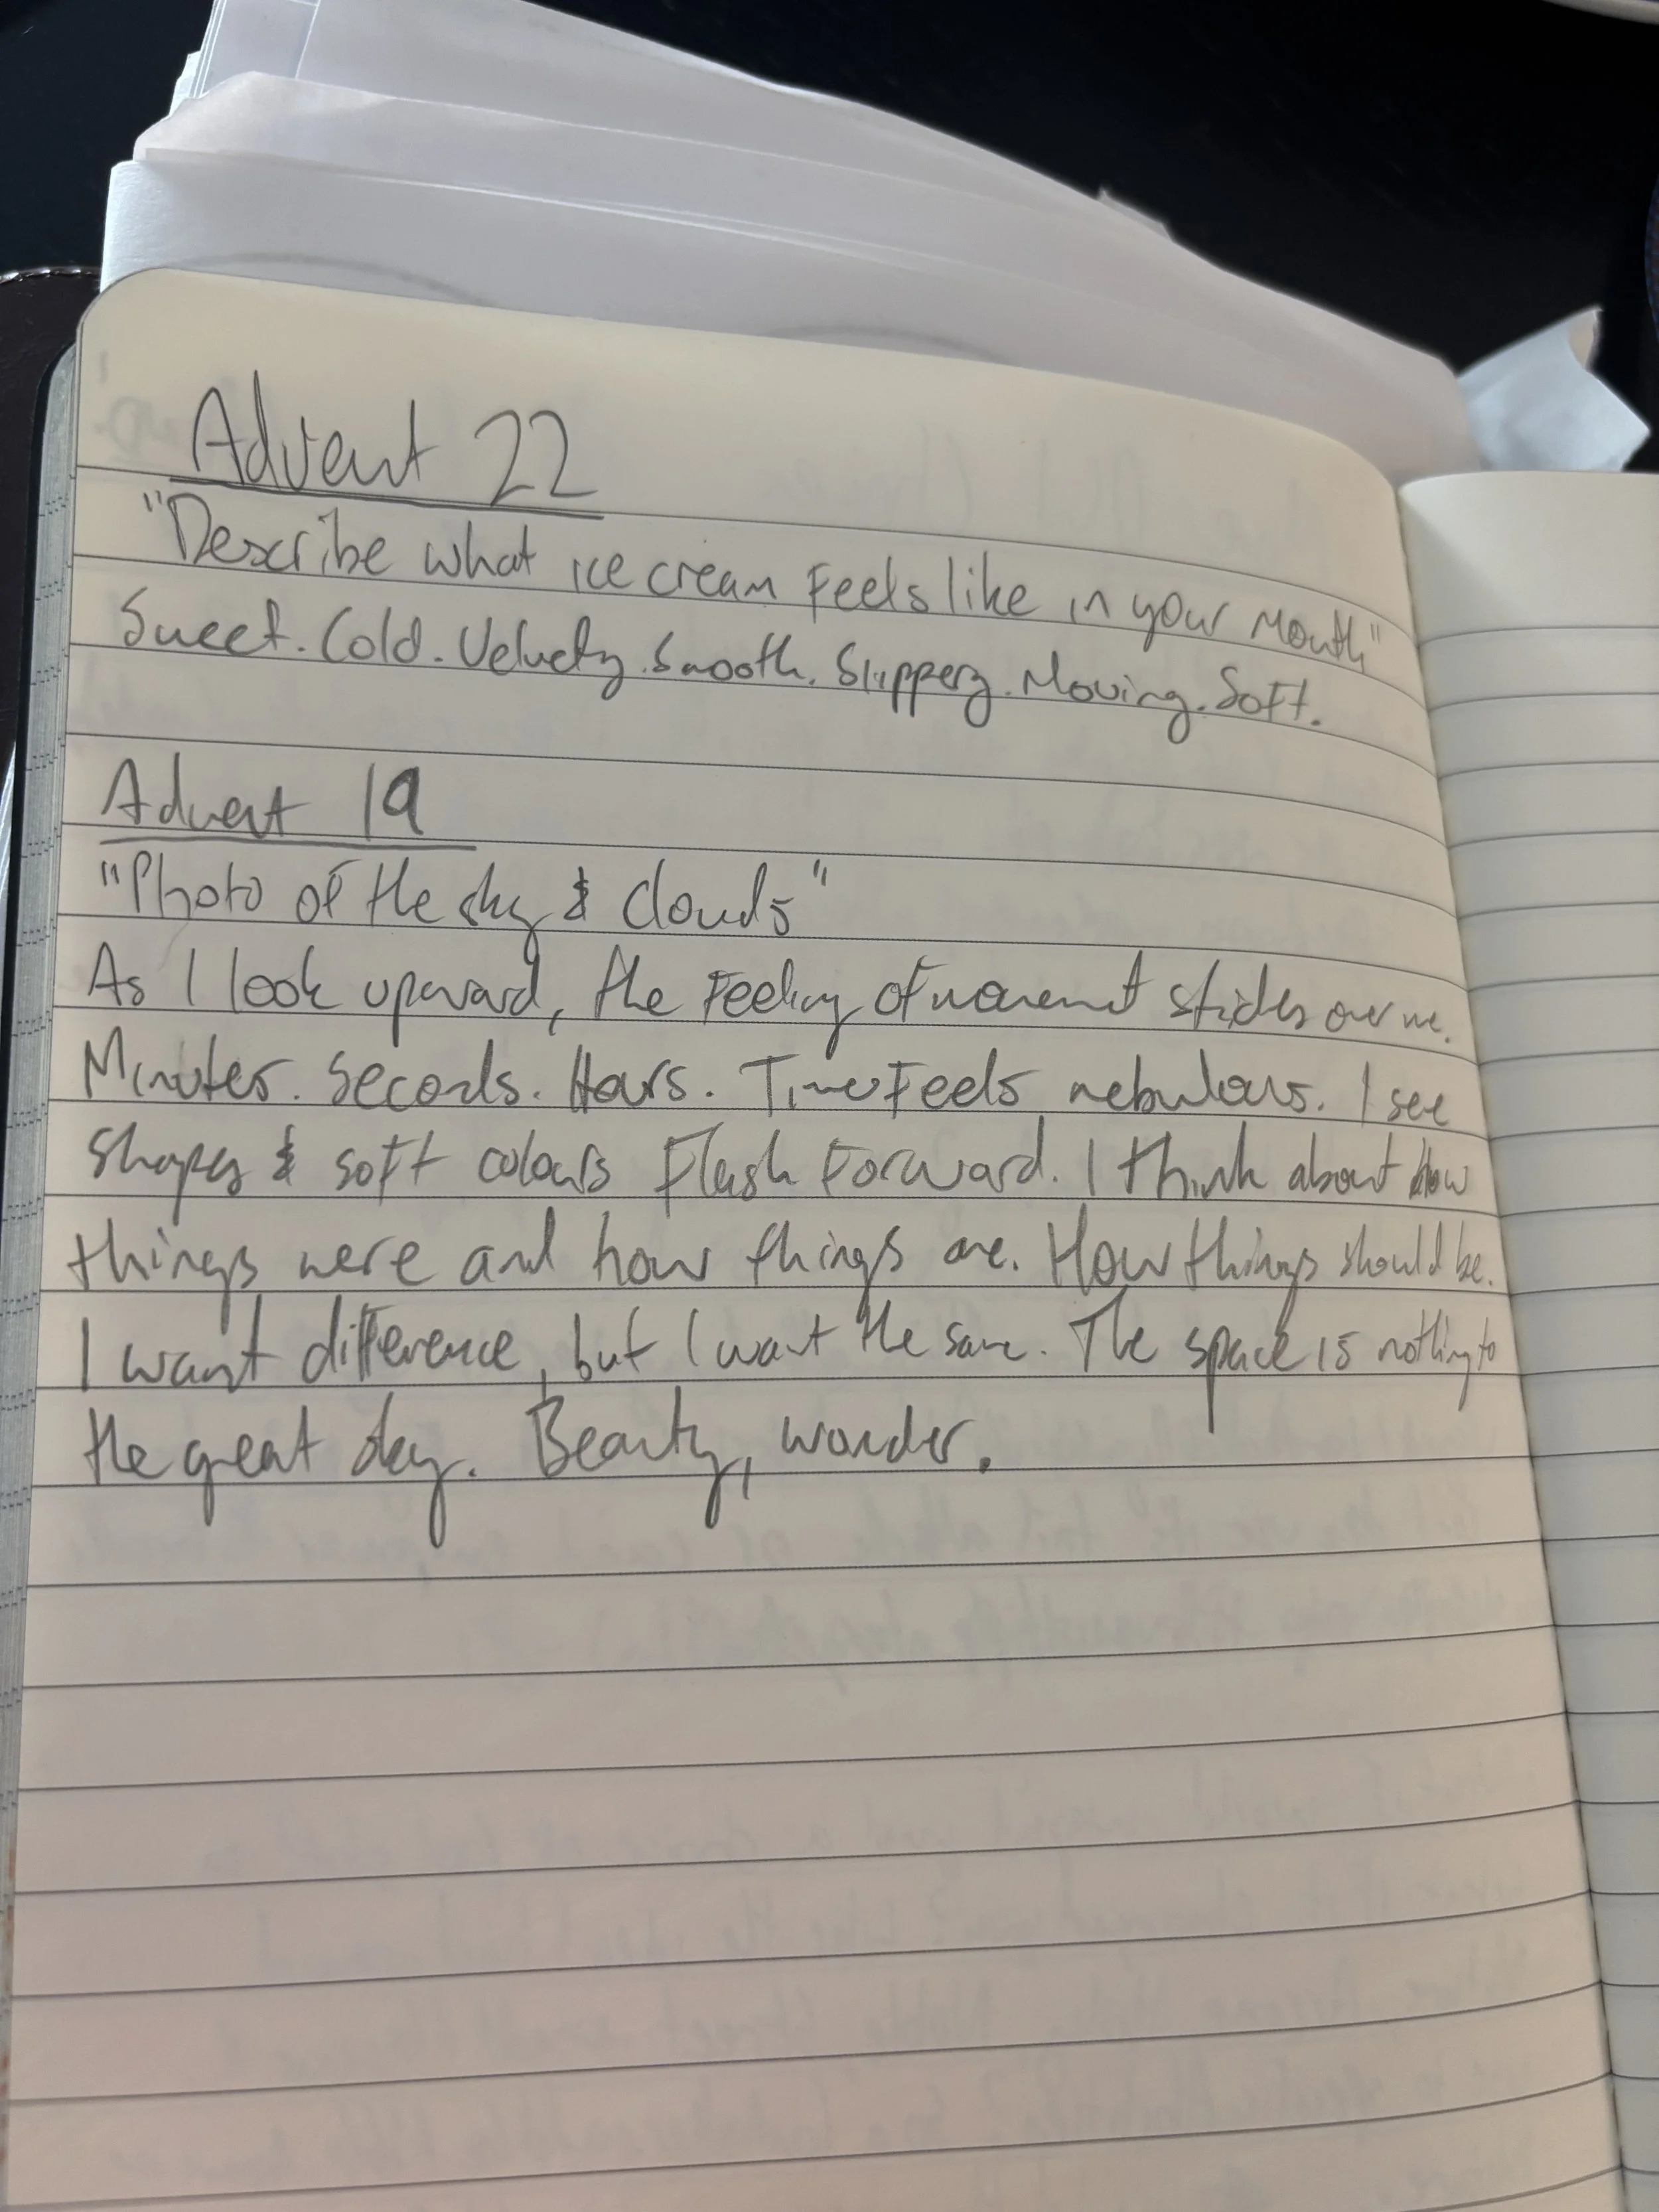 Advent 22
"Describe what ice cream feels like in your mouth"
Sweet. Cold. Velvety. Smooth. Slippery. Moving. Soft.
Advent 19
"Photo of the sky & clouds"
As I look upward, the feeling of movement strides over me.
Minutes. Seconds. Hours. Time feels nebulous. I see
shapes & soft colours flash forward. I think about how
things were and how things are. How things should be.
I want difference, but I want the same. The space is nothing to
the great sky. Beauty, wonder.